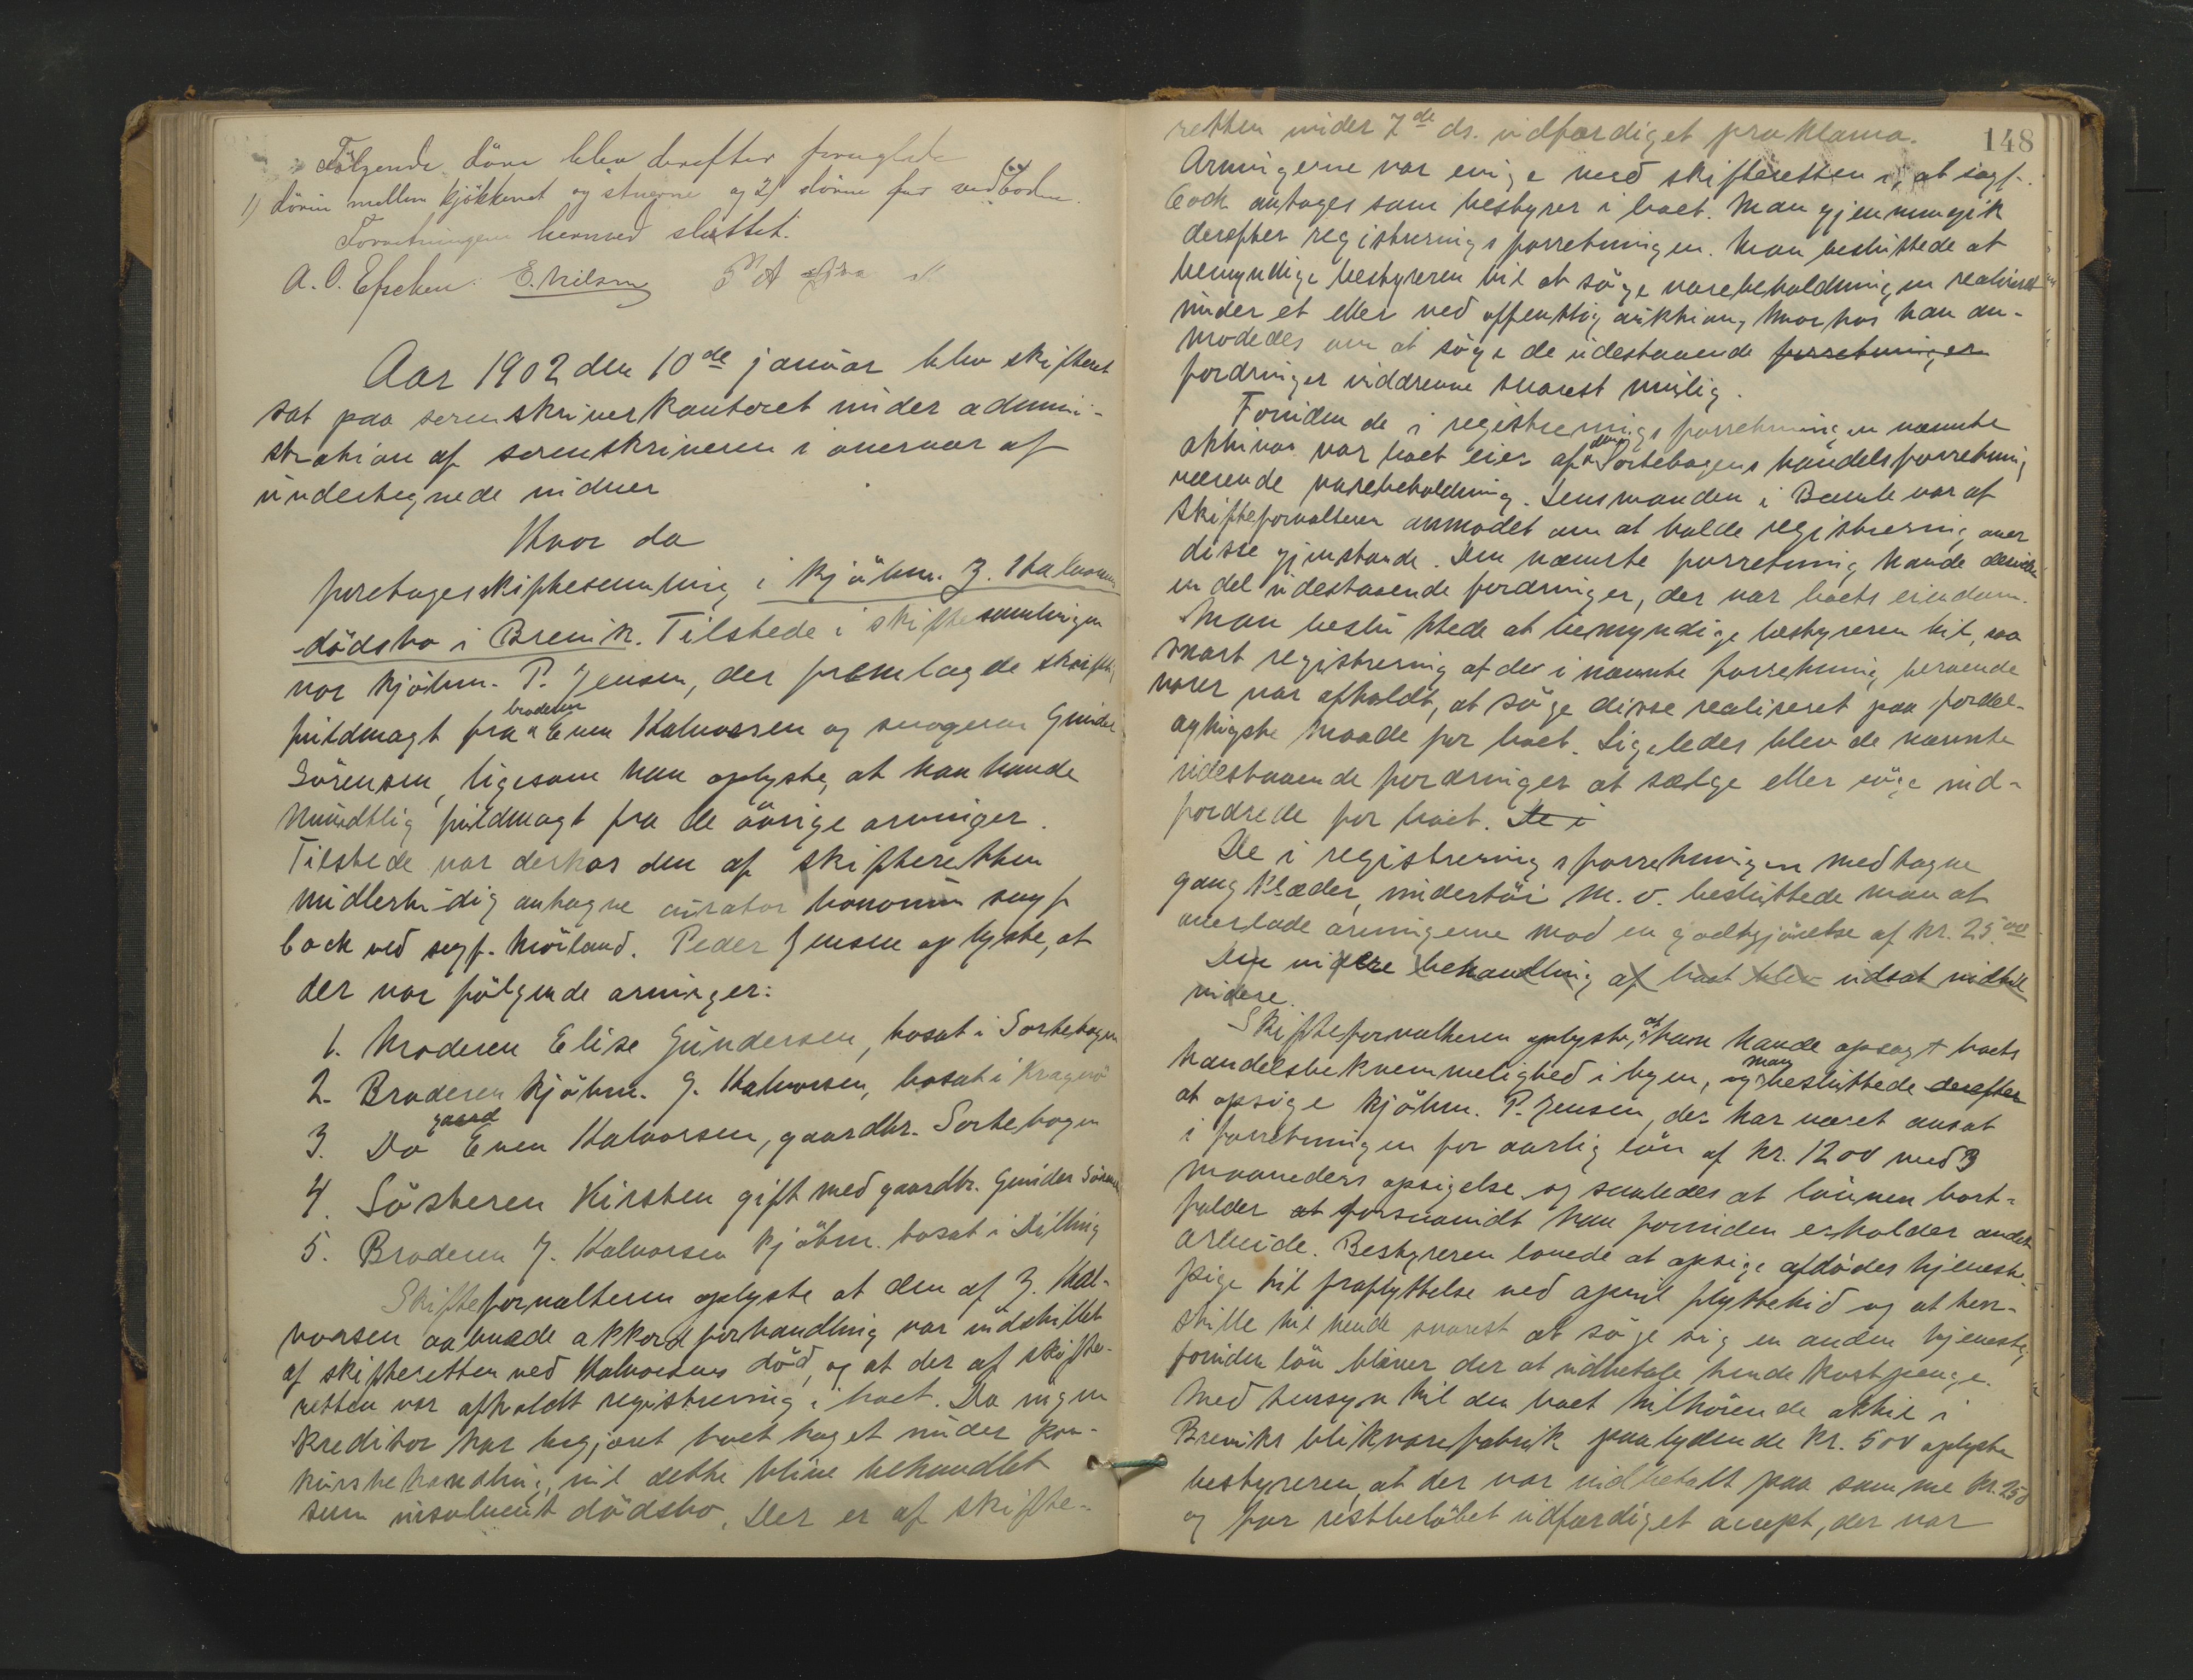 Følgende döre blev derefter forseglede
1) dören mellem kjökkenet og stuerne og 2) dören for vedboden.
Forretningen hermed sluttet.
A. O. E. Nilsen
Aar 1902 den 10de januar blev skifteret
sat paa sorenskriverkontoret under admini-
stration af sorenskriveren i overvær af
undertegnede vidner
Hvor da
foretoges skiftesamling i kjöbm. Z. Halvorsens
dödsbo i Brevik. Tilstede i skiftesamlingen
var kjöbm. P. Jensen, der fremlagde skriftlig
fuldmagt fra broderen Even Halvorsen og svogeren Gunder
Sörensen, ligesom han oplyste, at han havde
mundtlig fuldmagt fra de övrige arvinger.
Tilstede var derhos den af skifteretten
midlertidig antagne curator bonorum sagf
Cock ved sagf. Mörland. Peder Jensen oplyste, at
der var fölgende arvinger:
1. Moderen Elise Gundersen, bosat i Sortebogen
2. Broderen kjöbm. G. Halvorsen, bosat i Kragerö
3. Do gaard Even Halvorsen, gaardbr. Sortebogen
4. Sösteren Kirsten gift med gaardbr. Gunder Sörensen
5. Broderen J. Halvorsen kjöbm. bosat i Dilling
Skifteforvalteren oplyste at den af Z. Hal-
vorsen aabnede akkordforhandling var indstillet
af skifteretten ved Halvorsens död, og at der af skifte-
retten var afholdt registrering i boet. Da ingen
kreditor har begjæret boet taget under kon-
kursbehandling, vil dette blive behandlet
som insolvent dödsbo. Der er af skifte-
148
retten under 7de ds. udfærdiget proklama.
Arvingerne var enige med skifteretten i, at sagf.
Cock antages som bestyrer i boet. Man gjennemgik
derefter registreringsforretningen. Man besluttede at
bemyndige bestyreren til at söge varebeholdningen realiseret
under et eller ved offentlig auktion, hvorhos han an-
modedes om at söge de udestaaende forretninger
fordringer inddrevne snarest mulig.
Foruden de i registreringsforretningen nævnte
aktiva var boet eier af den i Sortebogens handelsforretning
værende varebeholdning. Lensmanden i Bamle var af
skifteforvalteren anmodet om at holde registrering over
disse gjenstande. Den nævnte forretning havde desuden
en del udestaaende fordringer, der var boets eiendom.
Man besluttede at bemyndige bestyreren til, saa
snart registrering af de i nævnte forretning beroende
varer var afholdt, at söge disse realiseret paa fordel-
agtigste maade for boet. Ligeledes blev de nævnte
udestaaende fordringer at sælge eller söge ind-
fordrede for boet. De i
De i registreringsforretningen medtagne
gangklæder, undertöi m. v. besluttede man at
overlade arvingerne mod en godtgjörelse af kr. 25.00
Den videre behandling af boet blev udsat indtil
videre.
Skifteforvalteren oplyste, at han havde opsagt boets
handelsbekvemmelighed i byen, og man besluttede derefter
at opsige kjöbm. P. Jensen, der har været ansat
i forretningen for aarlig lön af kr. 1200 med 3
maaneders opsigelse og saaledes at lönnen bort-
falder at forsaavidt han forinden erholder andet
arbeide. Bestyreren lovede at opsige afdödes tjeneste-
pige til fraflyttelse ved april flyttetid og at hen-
stille til hende snarest at söge sig en anden tjeneste;
foruden lön bliver der at udbetale hende kostpenge.
Med hensyn til den boet tilhörende aktie i
Breviks blikvarefabrik paalydende kr. 500 oplyste
bestyreren, at der var indbetalt paa samme kr. 250
og for restbelöbet udfærdiget accept, der var